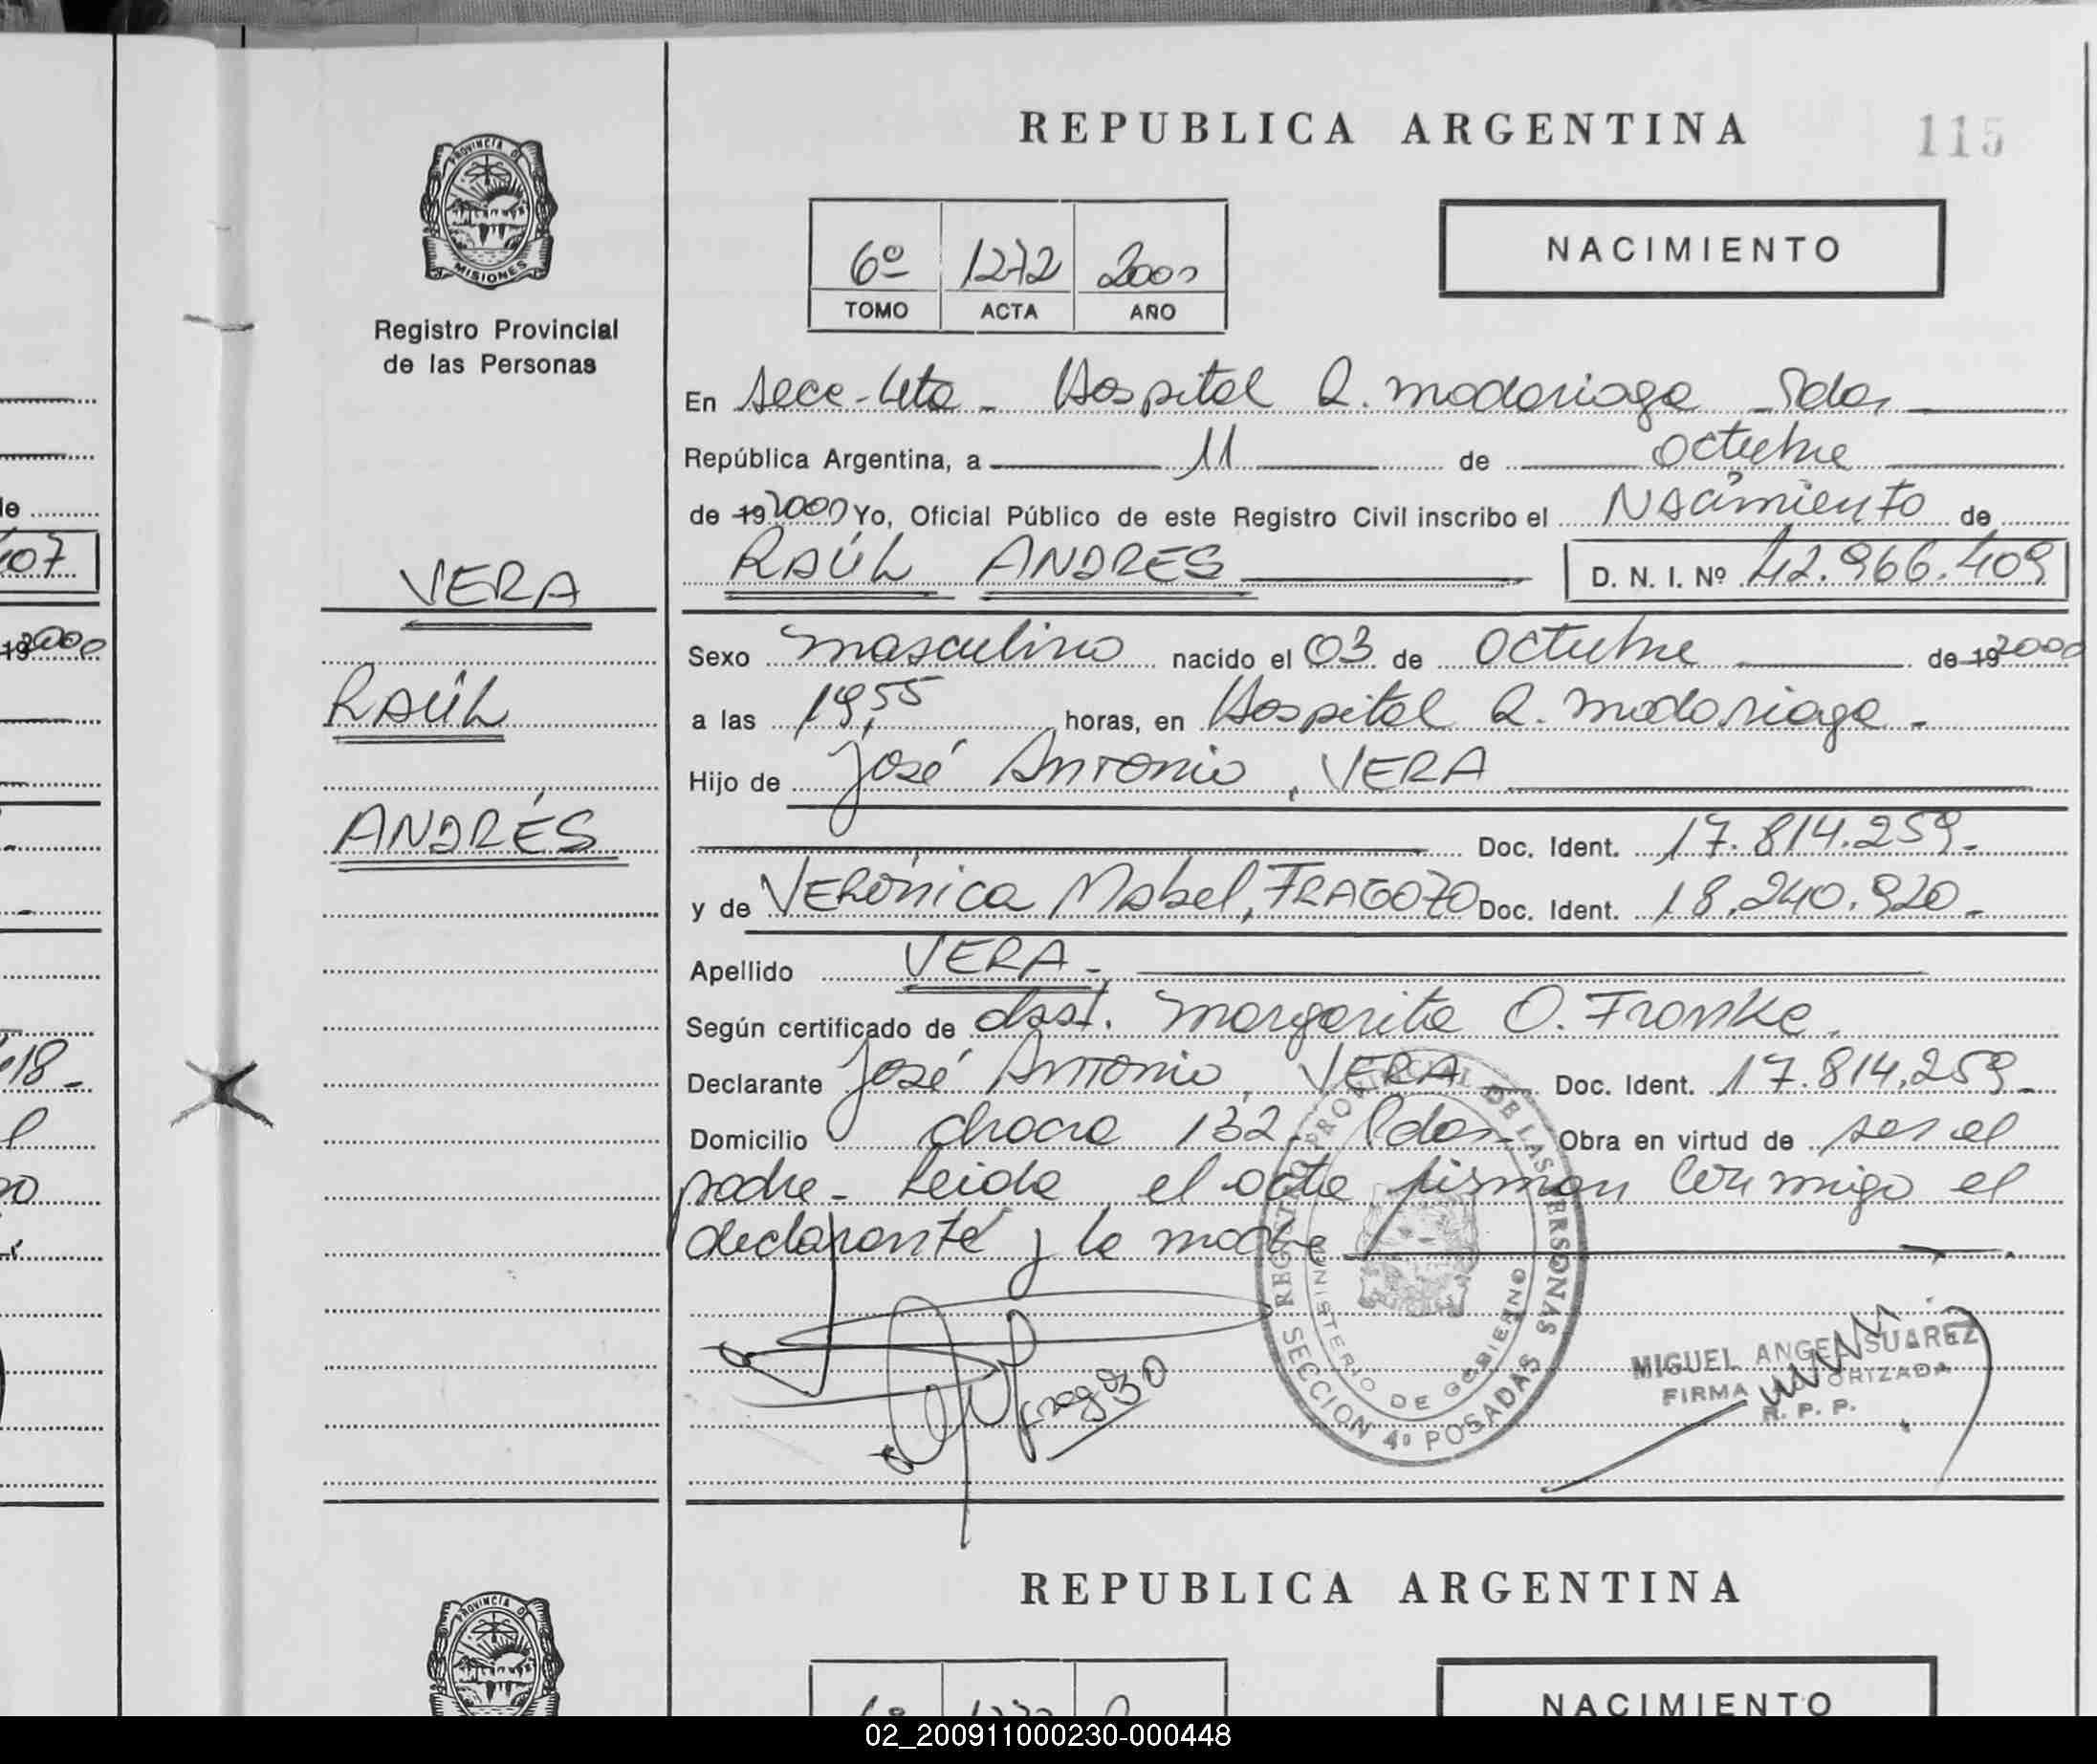 REPUBLICA ARGENTINA
115
PROVINCIA D
MISIONES
Registro Provincial
de las Personas
6º 1272 2000
TOMO ACTA AÑO
NACIMIENTO
En Secc. 4ta - Hospital R. Madariaga Pdas.
República Argentina, a 11 de octubre
de 19 2000 Yo, Oficial Público de este Registro Civil inscribo el Nacimiento de
RAÚL ANDRES D. N. I. Nº 42.966.409
VERA
RAÚL
ANDRÉS
Sexo masculino nacido el 03 de octubre de 19 2000
a las 19,55 horas, en Hospital R. Madariaga.
Hijo de José Antonio, VERA
Doc. Ident. 17.814.259.
y de VERónica Mabel, FRAGOZO Doc. Ident. 18.240.920.
Apellido VERA.
Según certificado de obst. Margarita O. Franke.
Declarante José Antonio, VERA Doc. Ident. 17.814.259.
Domicilio chacra 132. Pdas. Obra en virtud de ser el
padre - Leida el acta firman conmigo el
declarante y la madre
Fragozo
REGISTRO PROVINCIAL DE LAS PERSONAS
MINISTERIO DE GOBIERNO
SECCION 4ª POSADAS
MIGUEL ANGEL SUAREZ
FIRMA AUTORIZADA
R. P. P.
407
19 2000
18-
REPUBLICA ARGENTINA
PROVINCIA D
NACIMIENTO
02_200911000230-000448